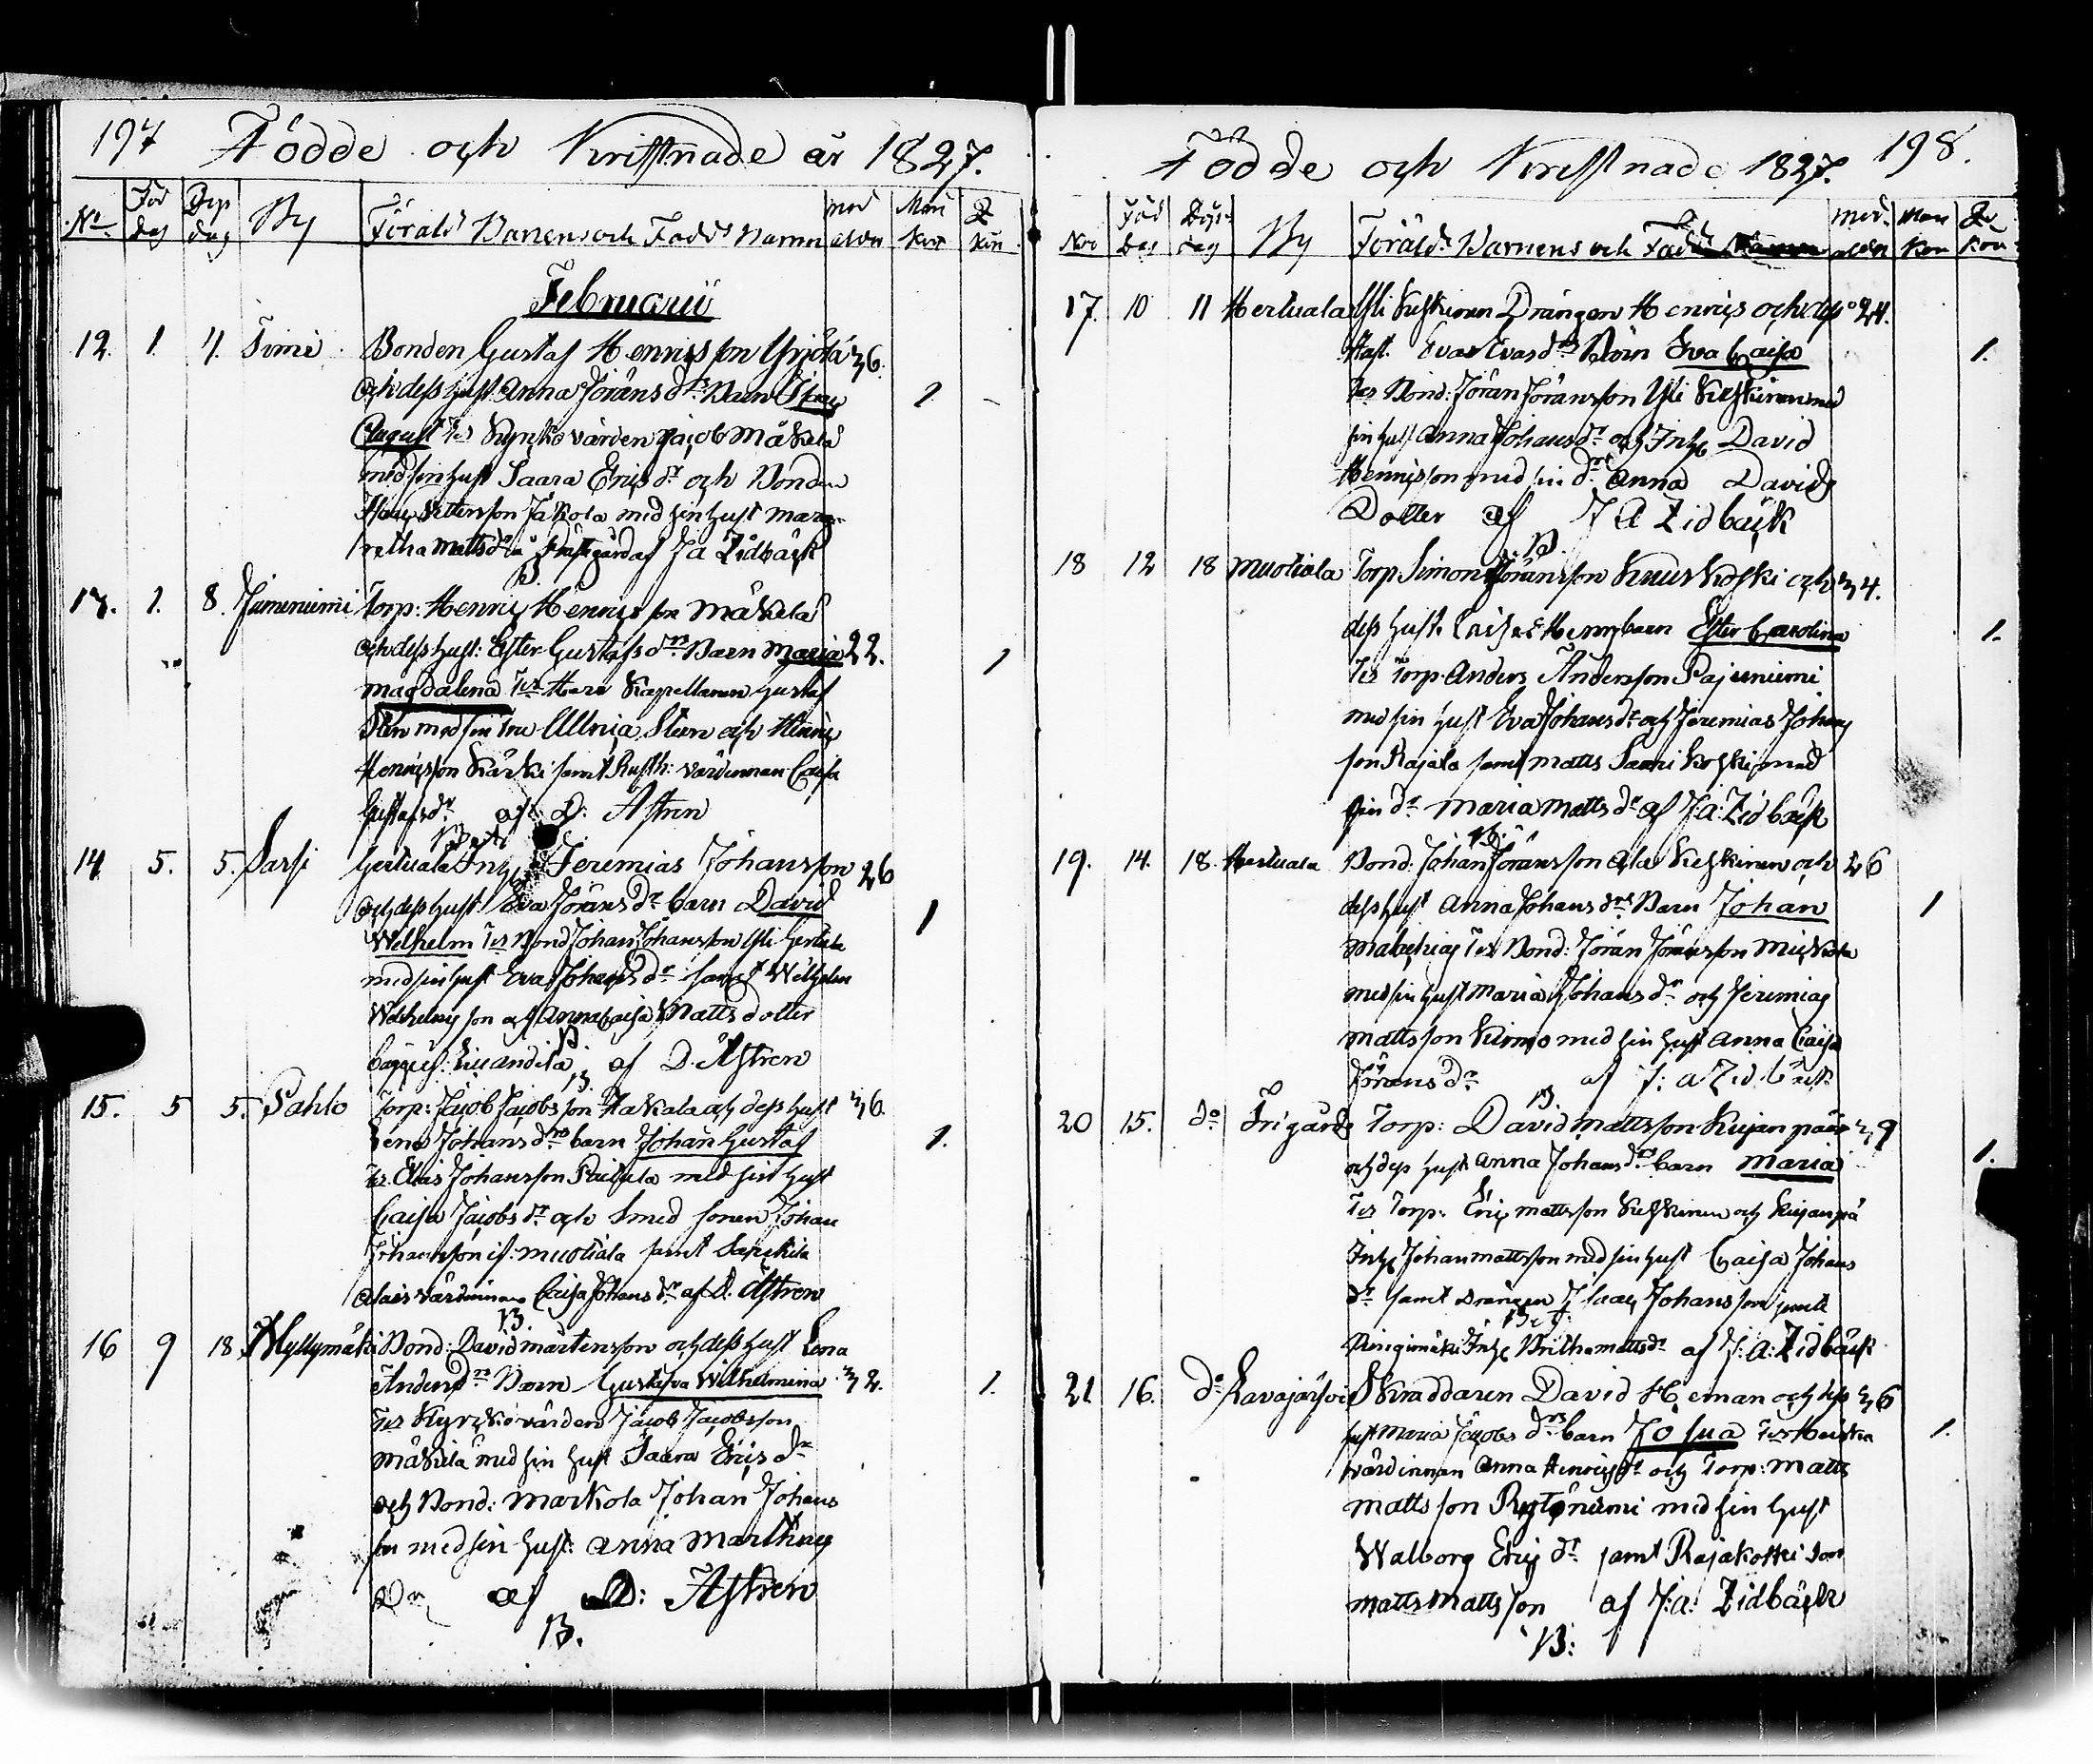 197 Födde och Kristnade år 1827.
No. Föd dag Döp dag By Föräld. Barnens och Fadd. Namn mod. åldern Man kön Q. kön
Februarii
12. 1. 4. Simi Bonden Gustaf Henricsson Yrjölä 36.
och dess hust. Anna Jörans dr. Barn Isaac 1
August Tes Kyrkovärden Jacob Mäkelä
med sin hust Saara Erics dr och Bonden
Isaac Pettersson Jakola med sin hust Marg-
retha Matts dr af J A Zidbäck
B.
13. 1. 8. Torp: Henric Henricsson Mäkelä
och dess hust: Ester Gustafs drs Barn Maria 22. 1
Magdalena Tes Herr Kapellanen Gustaf
Sten med sin Fru Ulrica Sten och Henric
Henricsson Kärki samt Rusth: värdinnan Caisa
Gustafs dr af D: Astren
B
14 5. 5. Sarsi Hertuala Inh. Jeremias Johansson 26
och dess hust. Eva Jörans dr barn David 1
Wilhelm Tes Bond Johan Johansson Yli Hertuala
med sin hust Eva Johans dr samt Wilhelm
Wilhelms son och Anna Caisa Matts dotter
af D. Astren
B.
15. 5 5. Sahlo Torp: Jacob Jacobsson Hakala och dess hust 36.
Lena Johans drs barn Johan Gustaf 1.
Tes. Elias Johansson med sin hust
Caisa Jacobs dr och Smed sonen Johan
Johansson if: Muotiala samt
Caisa Johans dr af D. Astren
B.
16 9 18 Myllymäki Bond: David Mårtensson och dess hust Lena
Anders drs Barn Gustafva Wilhelmina 32. 1.
Tes Kyrkovärden Jacob Jacobsson
Mäkelä med sin hust Saara Erics dr
och Bond: Markola Johan Johans
son med sin hust: Anna Marthens
Dr af D: Astren
B.
Födde och Kristnade 1827. 198.
Nro Föd Dag Döp dag By Föräld. Barnens och Fadd. Namn mod. åldern Man Kön Q. Kön
17. 10 11 Hertuala Yli Keskinen Drängen Henric och dess 24.
Hust. Eva Evas drs Barn Eva Caisa 1.
Tes Bond: Jöran Jöransson Yli Keskinen med
sin hust Anna Johans dr och Inh. David
Henricsson med sin dr Anna Davids
Dotter af J A Zidbäck
B.
18 12 18 Muotiala Torp Simon Jöransson Kuuskoski och 34.
dess hust. Caisa Henr. barn Ester Carolina 1.
Tes Torp Anders Andersson Pajuniemi
med sin hust Eva Johans dr och Jeremias Johans
son Rajala samt Matts Saarikoski med
sin dr Maria Matts dr af J: A: Zidbäck
B.
19. 14. 18. Hertuala Bond: Johan Jöransson Ala Keskinen och 26
dess hust Anna Johans drs Barn Johan 1
Malachias Tes Bond: Jöran Jöransson
med sin hust Maria Johans dr och Jeremias
Mattsson med sin hust Anna Caisa
Jörans dr af J: A Zidbäck
B.
20 15. do Frigårds Torp: David Mattsson Kujanpää 39
och dess hust Anna Johans drs barn Maria 1.
Tes Torp: Eric Mattsson Keskinen och Kujanpä
Inh. Johan Mattsson med sin hust Caisa Johans
dr samt Drängen Isaac Johansson
Inh. Britha Matts dr af J: A: Zidbäck
B.
21. 16. do Savajärvi Skraddaren David Heman och dess 36
hust Maria Jacobs drs barn Josua Tes 1.
värdinnan Anna Henrics dr och Torp: Matts
Mattsson Rytöniemi med sin hust
Walborg Erics dr samt Rajakoski
Matts Mattsson af J: A: Zidbäck
B: